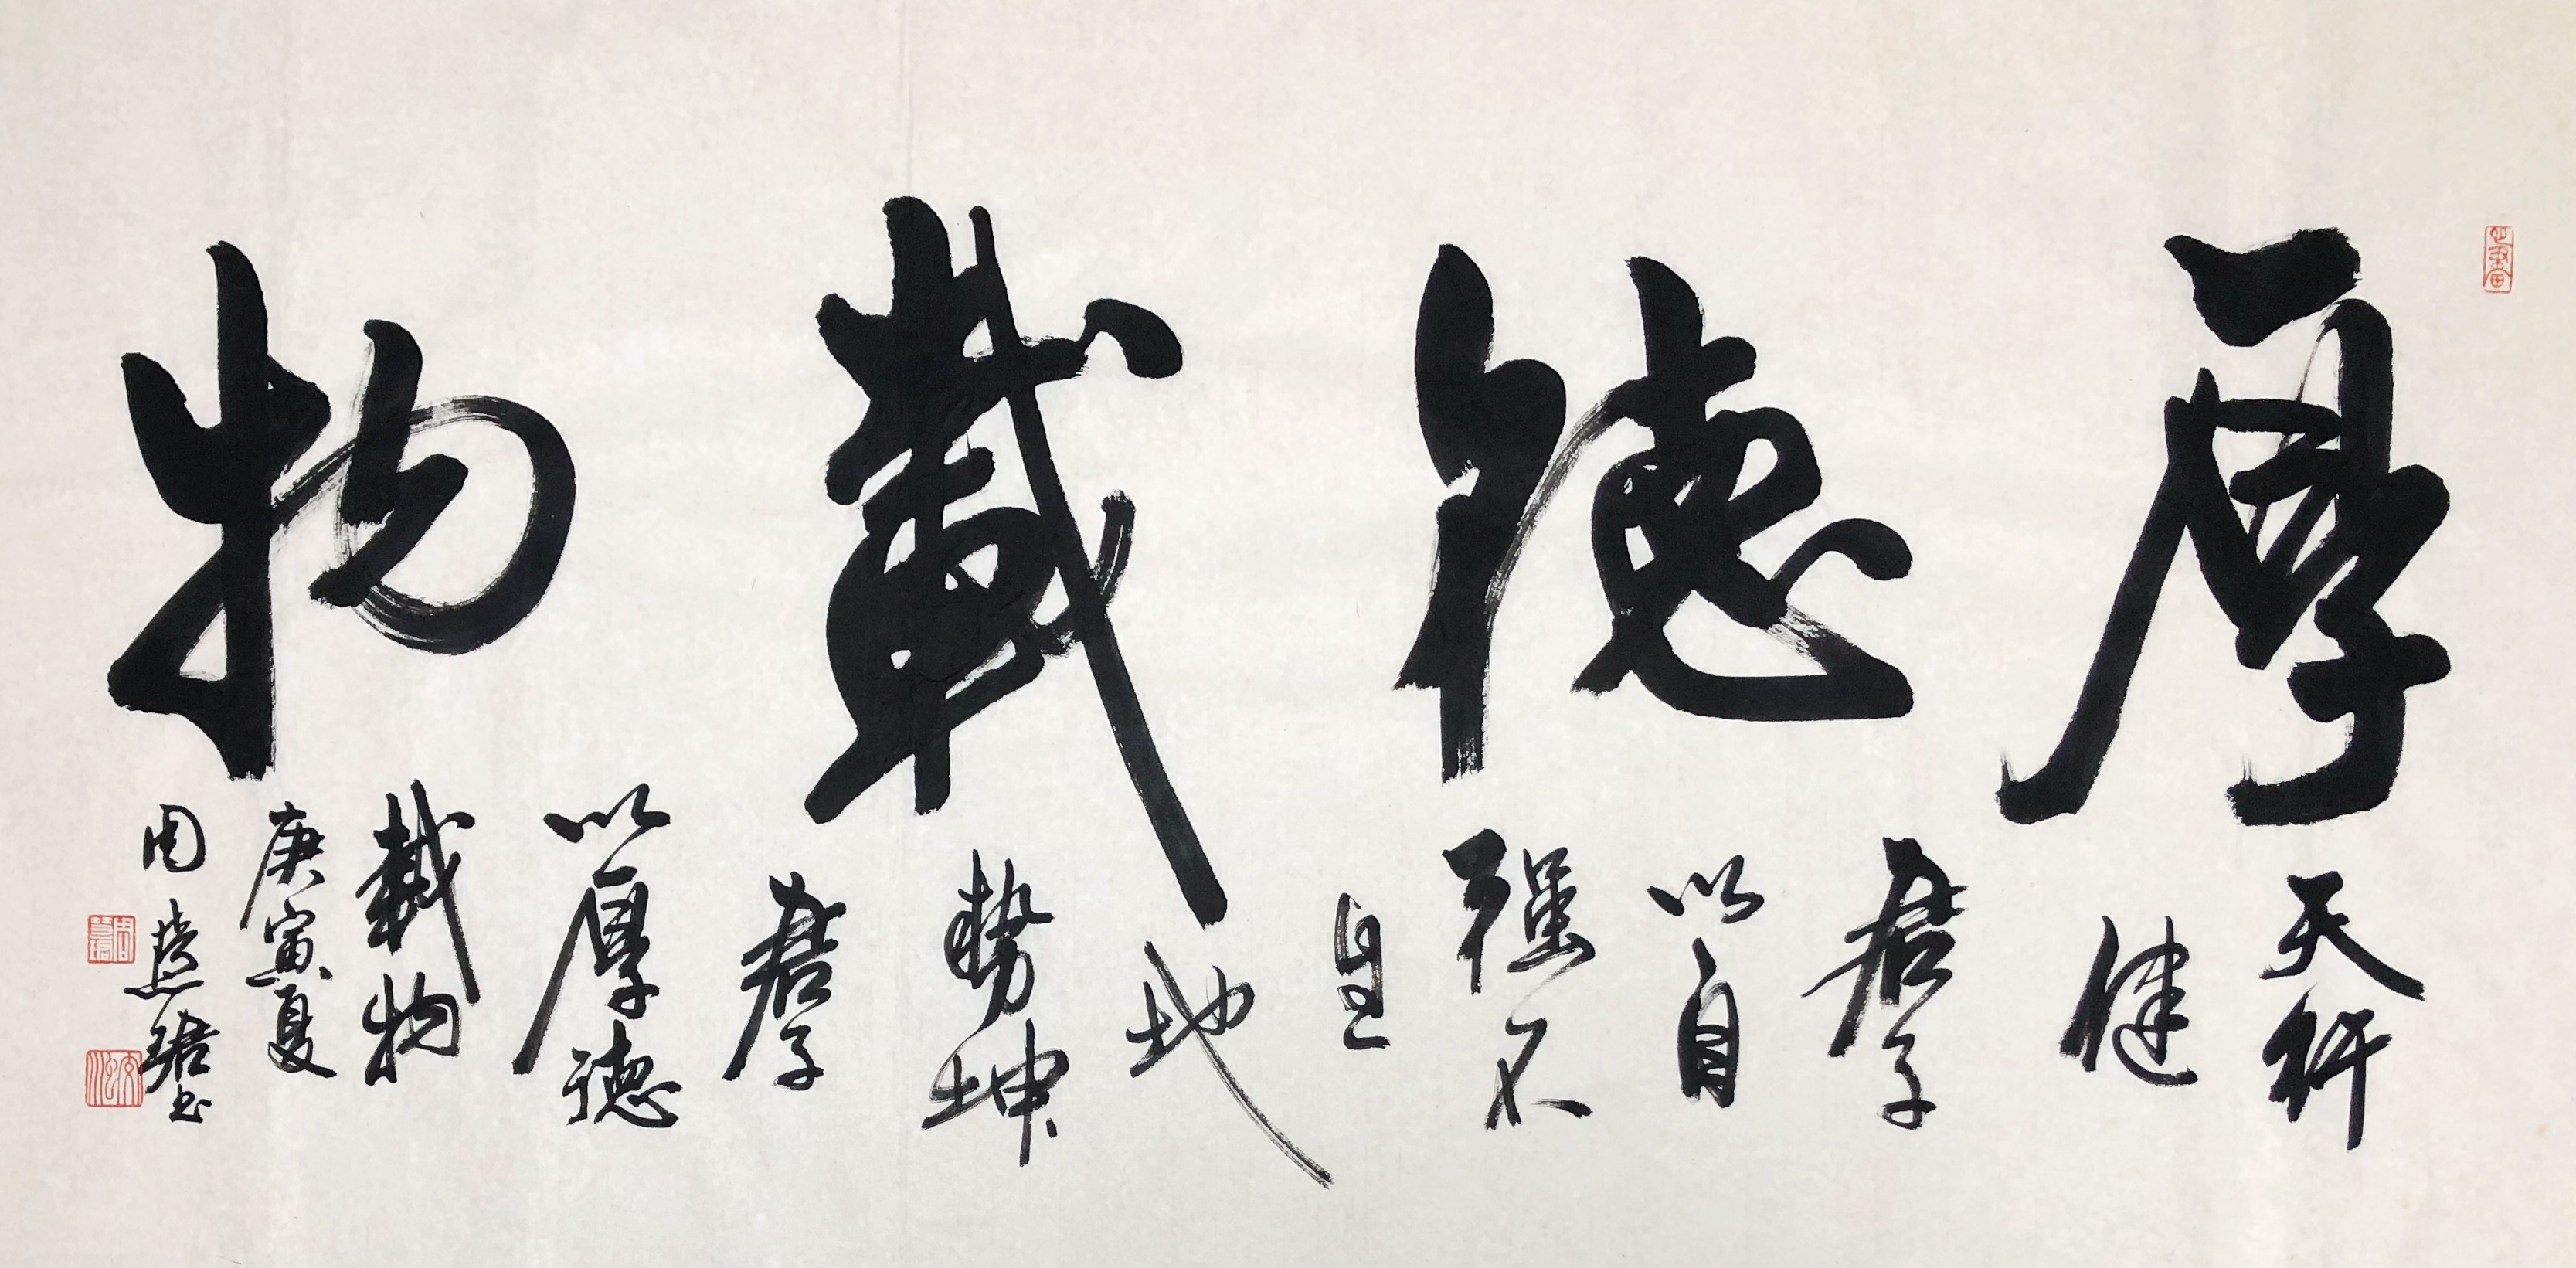 厚德載物
天行
健
君子
以自
强不
息
地
勢坤
君子
以厚德
載物
庚寅夏
周慧珺书